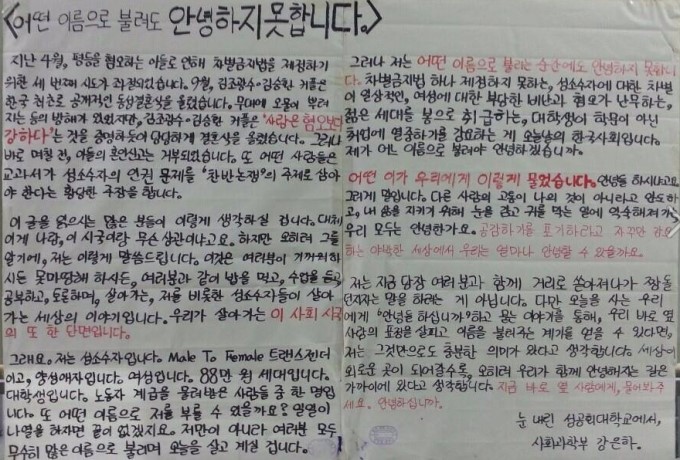 <어떤 이름으로 불려도 안녕하지 못합니다.>
지난 4월, 평등을 혐오하는 이들로 인해 차별금지법을 제정하기
위한 세 번째 시도가 좌절되었습니다. 9월, 김조광수-김승환 커플은
한국 최초로 공개적인 동성결혼식을 올렸습니다. 무대에 오물이 뿌려
지는 등의 방해가 있었지만, 김조광수-김승환 커플은 '사랑은 혐오보다
강하다'는 것을 증명하듯이 당당하게 결혼식을 올렸습니다. 그러나
바로 며칠 전, 이들의 혼인신고는 거부되었습니다. 또 어떤 사람들은
교과서가 성소수자의 인권 문제를 "찬반논쟁"의 주제로 삼아
야 한다는 황당한 주장을 합니다.
이 글을 읽으시는 많은 분들이 이렇게 생각하실 겁니다. 대체
이게 나랑, 이 시국이랑 무슨 상관이냐고요. 하지만 오히려 그럴
알기에, 저는 이렇게 말씀드립니다. 이것은 여러분이 기꺼워하
시든 못마땅해 하시든, 여러분과 같이 밥을 먹고, 수업을 듣고,
공부하고, 토론하며, 살아가는, 저를 비롯한 성소수자들이 살아
가는 세상의 이야기입니다. 우리가 살아가는 이 사회 시국
의 또 한 단면입니다.
그래요. 저는 성소수자입니다. Male To Female 트랜스젠더
이고, 양성애자입니다. 여성입니다. 88만 원 세대입니다.
대학생입니다. 노동자 계급을 물려받은 사람들 중 한 명입
니다. 또 어떤 이름으로 저를 부를 수 있을까요? 일일이
나열을 하자면 끝이 없겠지요. 저만이 아니라 여러분 모두
무수히 많은 이름으로 불리며 오늘을 살고 계실 겁니다.
그러나 저는 어떤 이름으로 불리는 순간에도 안녕하지 못합니
다. 차별금지법 하나 제정하지 못하는, 성소수자에 대한 차별
이 일상적인, 여성에 대한 부당한 비난과 혐오가 난무하는,
젊은 세대를 봉으로 취급하는, 대학생이 학문이 아닌
취업에 열중하기를 강요하는 게 오늘날의 한국사회입니다.
제가 어느 이름으로 불려야 안녕하겠습니까.
어떤 이가 우리에게 이렇게 물었습니다. 안녕들 하시냐고요.
그러게 말입니다. 다른 사람의 고통이 나의 것이 아니라고 안도하
고, 내 삶을 지키기 위해 눈을 감고 귀를 막는 일에 익숙해져가는
우리 모두는 안녕한가요. 공감하기를 포기하라고 자꾸만 강요
하는 야박한 세상에서 우리는 얼마나 안녕할 수 있을까요.
저는 지금 당장 여러분과 함께 거리로 쏟아져나가 짱돌
던지자는 말을 하려는 게 아닙니다. 다만 오늘을 사는 우리
에게 "안녕들 하십니까?"하고 묻는 이야기를 통해, 우리 바로 옆
사람의 표정을 살피고 이름을 불러주는 계기를 얻을 수 있다면,
저는 그것만으로도 충분한 의미가 있다고 생각합니다. 세상이
외로운 곳이 되어갈수록, 오히려 우리가 함께 안녕하자는 길은
가까이에 있다고 생각합니다. 지금 바로 옆 사람에게, 물어봐주
세요. 안녕하십니까.
눈 내린 성공회대학교에서,
사회과학부 강은하.